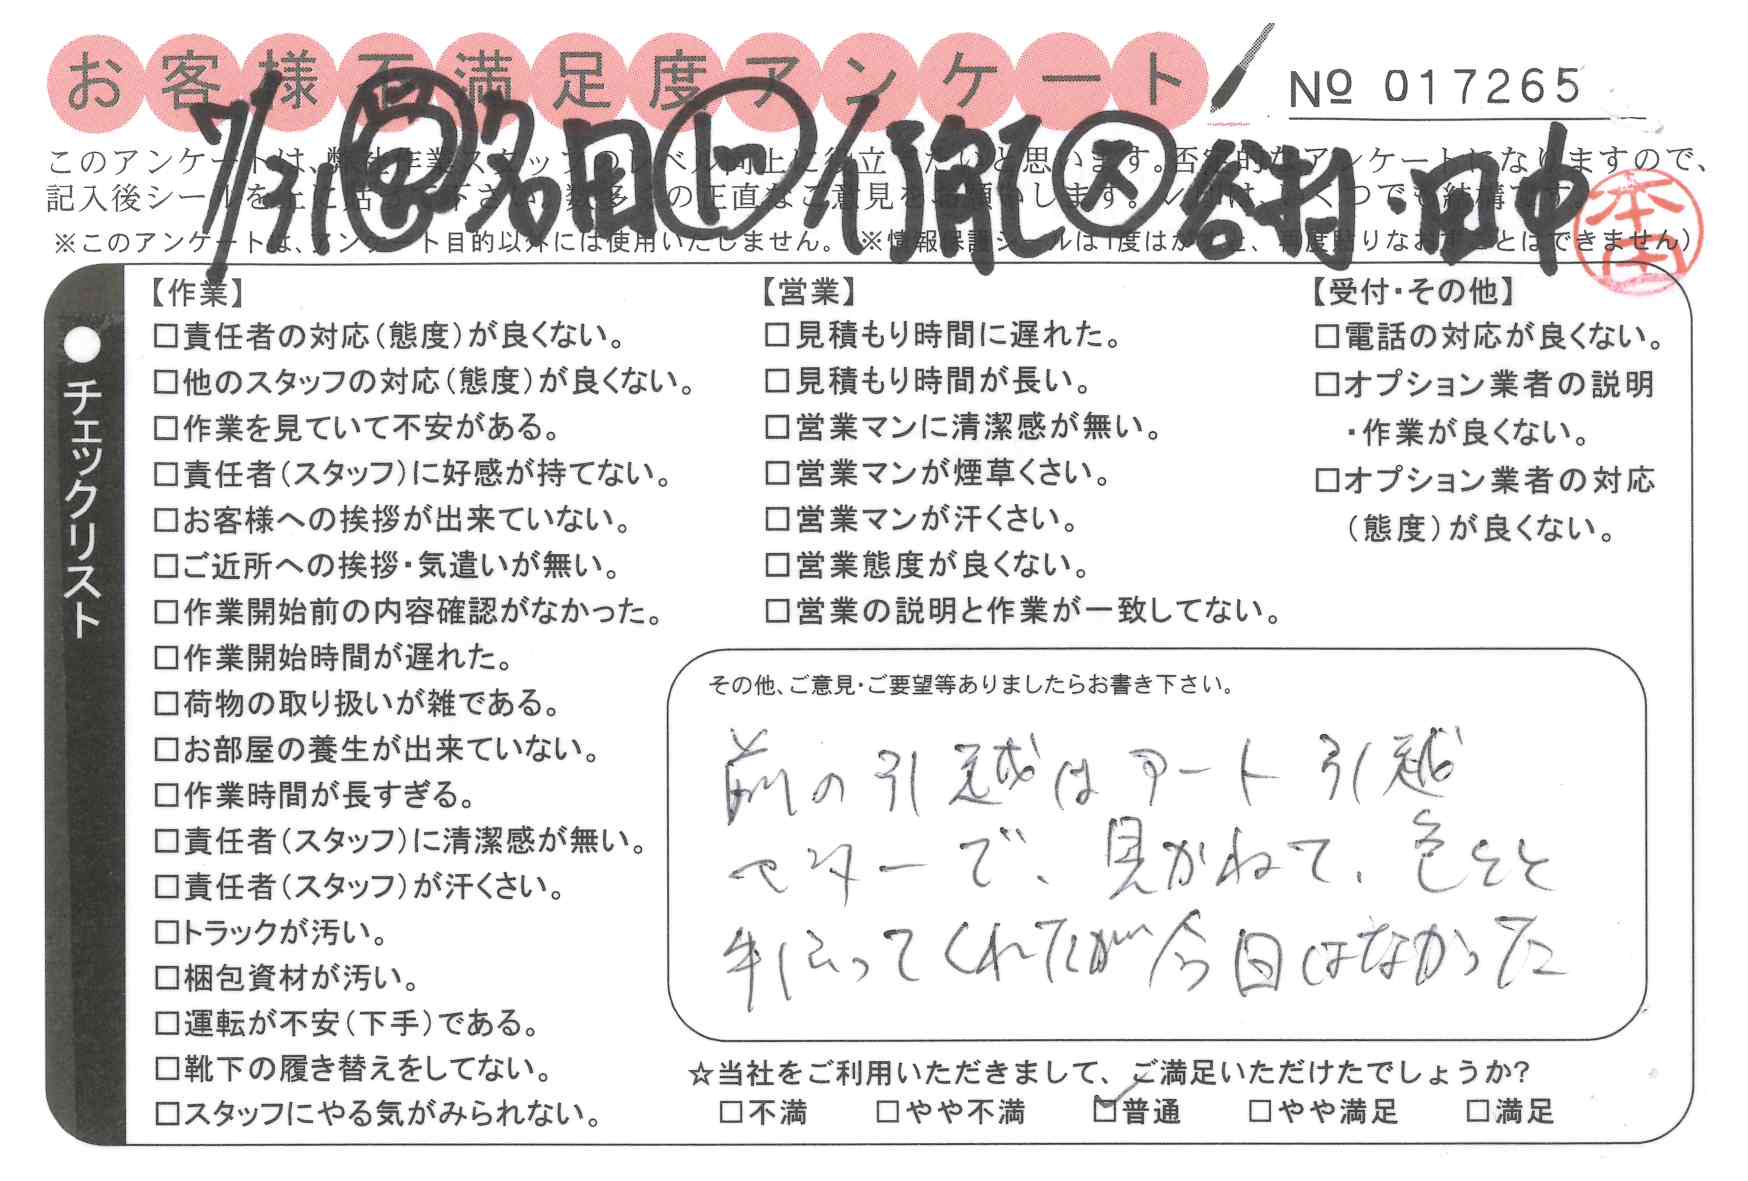 お客様不満足度アンケート
№ 017265
7/31
このアンケートは、弊社作業スタッフのレベル向上に役立てたいと思います。否定的なアンケートになりますので、
記入後シールを上に貼って下さい。数多くの正直なご意見をお願いします。
※このアンケートは、アンケート目的以外には使用いたしません。(※情報保護シールは1度はがすと、再度貼りなおすことはできません)
谷村・田中
本田
●チェックリスト
【作業】
□責任者の対応(態度)が良くない。
□他のスタッフの対応(態度)が良くない。
□作業を見ていて不安がある。
□責任者(スタッフ)に好感が持てない。
□お客様への挨拶が出来ていない。
□ご近所への挨拶・気遣いが無い。
□作業開始前の内容確認がなかった。
□作業開始時間が遅れた。
□荷物の取り扱いが雑である。
□お部屋の養生が出来ていない。
□作業時間が長すぎる。
□責任者(スタッフ)に清潔感が無い。
□責任者(スタッフ)が汗くさい。
□トラックが汚い。
□梱包資材が汚い。
□運転が不安(下手)である。
□靴下の履き替えをしてない。
□スタッフにやる気がみられない。
【営業】
□見積もり時間に遅れた。
□見積もり時間が長い。
□営業マンに清潔感が無い。
□営業マンが煙草くさい。
□営業マンが汗くさい。
□営業態度が良くない。
□営業の説明と作業が一致してない。
【受付・その他】
□電話の対応が良くない。
□オプション業者の説明
・作業が良くない。
□オプション業者の対応
(態度)が良くない。
その他、ご意見・ご要望等ありましたらお書き下さい。
前の引越はアート引越
センターで、見かねて、色々と
手伝ってくれたが今日はなかった
☆当社をご利用いただきまして、ご満足いただけたでしょうか?
□不満 □やや不満 ☑普通 □やや満足 □満足